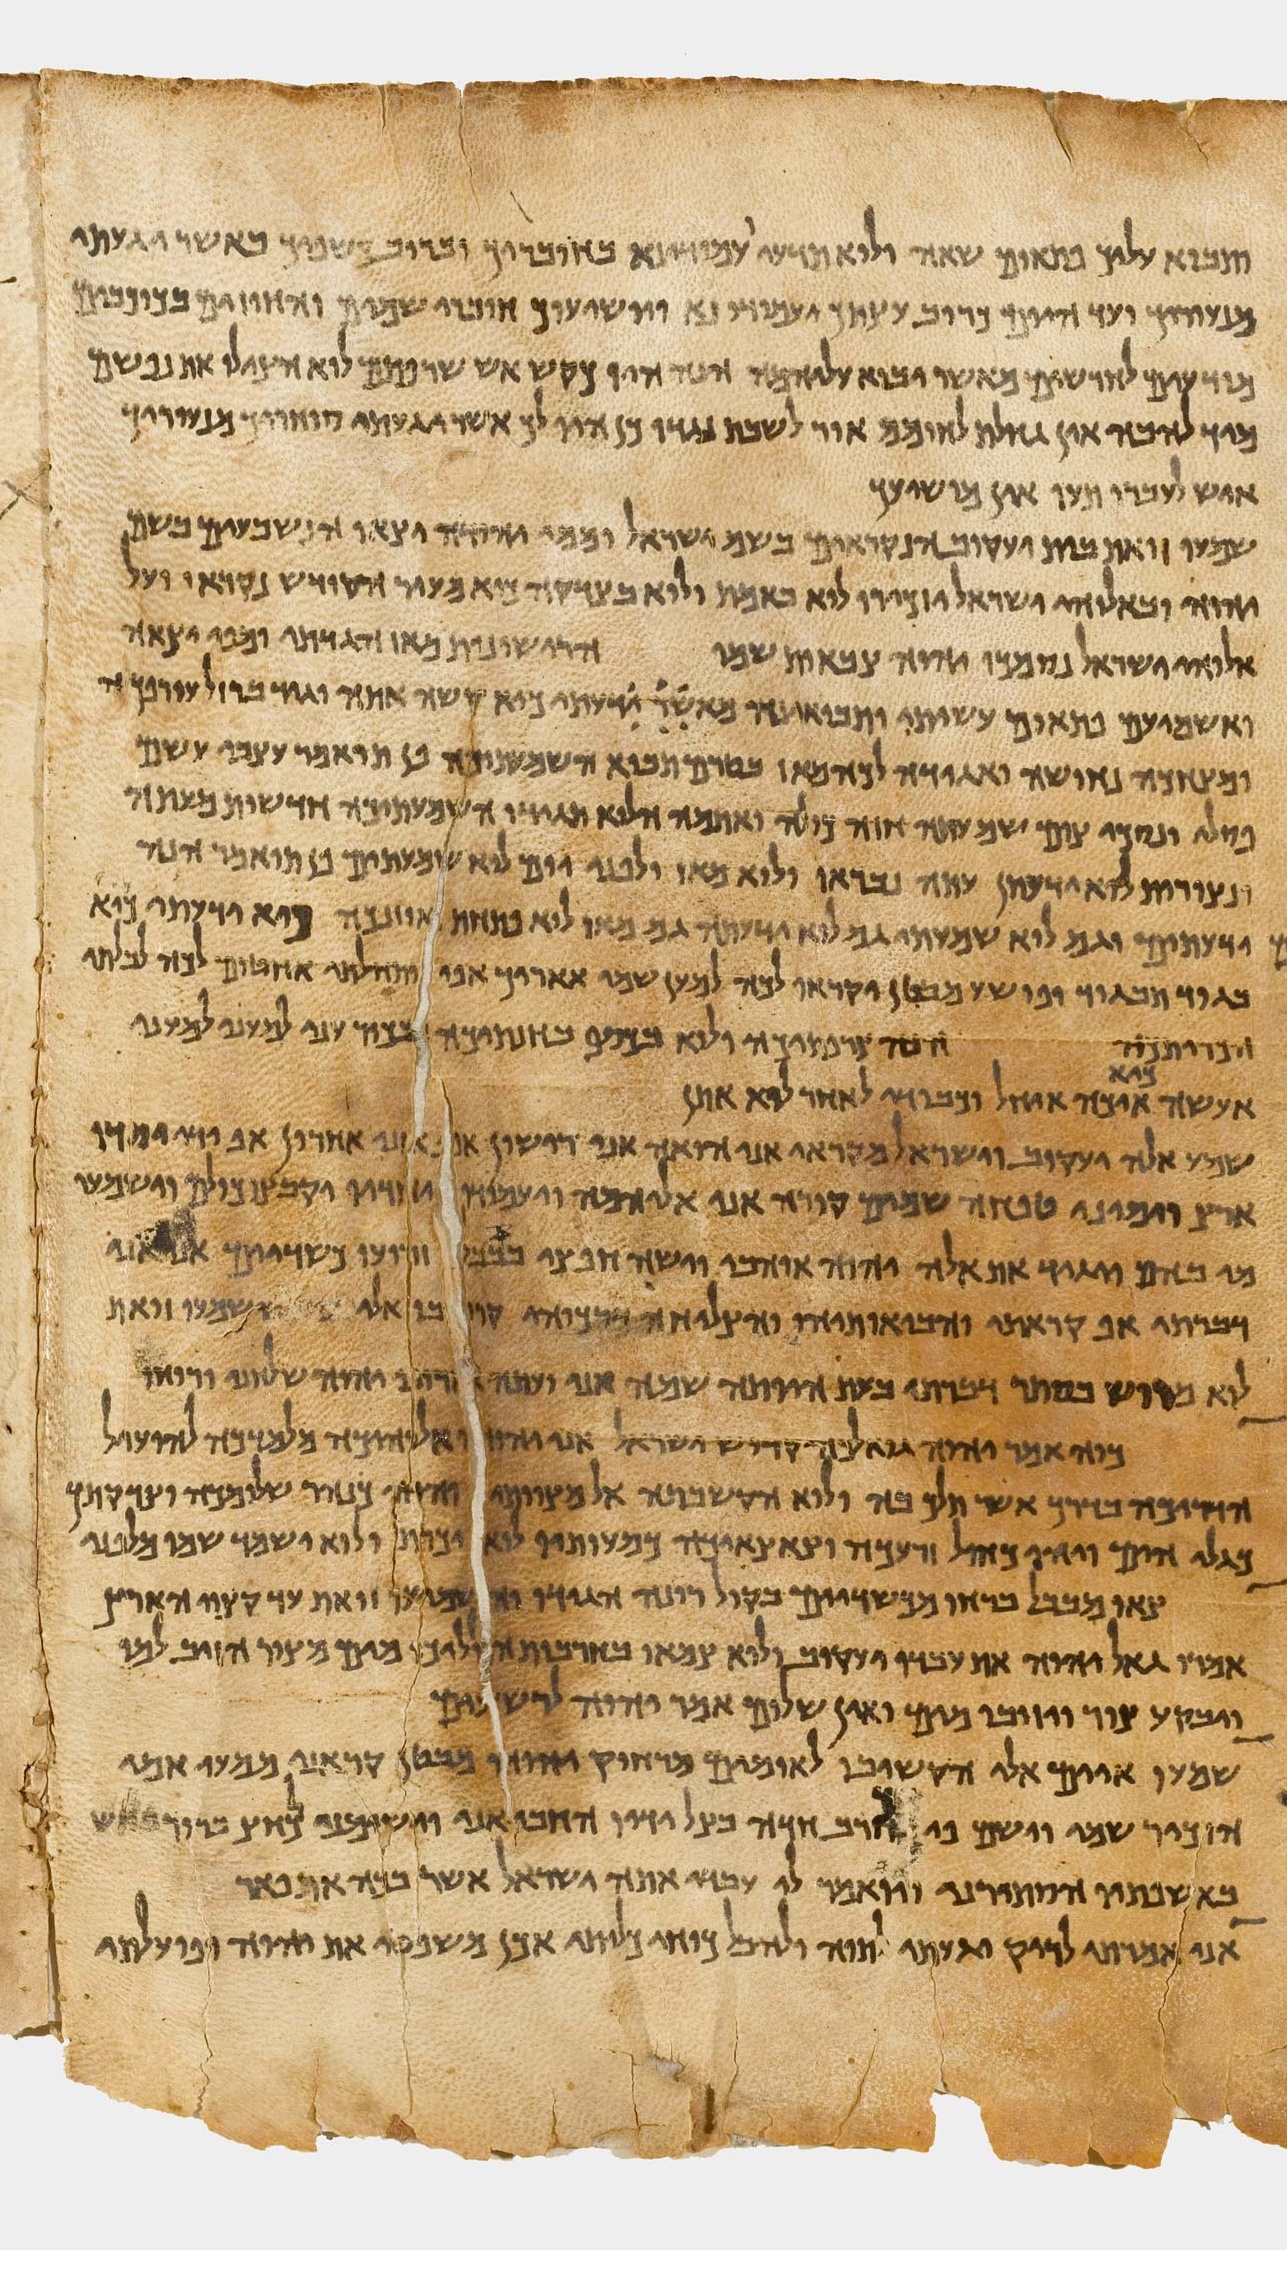 ותבוא עליך פתאום שאה ולוא תדעי עמודי נא בחובריך וברוב כשפיך כאשר יגעתי
מנעוריך ועד היום כרוב עצתך יעמודו נא ויושיעוך חוברי שמים והחוזים בכוכבים
מודיעים לחודשים מאשר יבוא עליהמה הנה היו כקש אש שרפתם לוא הצילו את נפשם
מיד להבה אין גחלת לחומם אור לשבת נגדו כן היו לך אשר יגעתי סוחריך מנעוריך
איש לעברו תעו אין מושיעך
שמעו זואת בית יעקוב הנקראים בשם ישראל וממי יהודה יצאו הנשבעים בשם
יהוה ובאלוהי ישראל יזכירו לוא באמת ולוא בצדקה כיא מעיר הקודש נקראו ועל
אלוהי ישראל נסמכו יהוה צבאות שמו הרישונות מאז הגדתי ומפי יצאה
ואשמיעם פתאום עשיתי ותבואינה מאשר ידעתי כיא קשה אתה וגיד ברזל עורפכה
ומצחכה נחושה ואגידה לכה מאז בטרם תבוא השמעתיכה פן תואמר עצבי עשם
פסלי ונסכי צום שמעתה חזה כולה ואתמה הלוא תגידו השמעתיכה חדשות מעתה
ונצורות לוא ידעתן עתה נבראו ולוא מאז ולפני יום לוא שמעתים פן תואמר הנה
ידעתים וגם לוא שמעתה גם לוא ידעתה גם מאז לוא פתחת אוזנכה כיא ידעתי כיא
בגוד תבגוד ופושע מבטן יקראו לכה למען שמי אאריך אפי ותהלתי אחטום לכה לבלתי
הכריתכה הנה צרפתיכה ולוא בכסף בחנתיכה בכור עוני למעני למעני
אעשה כיא איככה איחל וכבודי לאחר לוא אתן
שמע אלה יעקוב וישראל מקראי אני הואה אני רישון אף אני אחרון אף ידי יסדו
ארץ וימיני טפחה שמים קורה אני אליהמה ויעמודו יחדיו יקבצו כולם וישמעו
מי בהם ויגיד את אלה יהוה אוהבי ויעשה חפצי בבבל וזרועו כשדיים אני אני
דברתי אף קראתי והביאותיהו והצליחה דרכיוהי קרבו אלי ושמעו זואת
לוא מרוש בסתר דברתי בעת היותה שמה אני ועתה אדוני יהוה שלחני ורוחו
כוה אמר יהוה גואלכה קדוש ישראל אני יהוה אלוהיכה מלמדכה להועיל
הדריכה בדרך אשר תלך בה ולוא הקשבתה אל מצוותי והיה כנהר שלומכה וצדקתך
כגלי הים ויהי כחול זרעכה וצאצאיכה כמעותיו לוא יכרת ולוא ישמד שמו מלפני
צאו מבבל ברחו מכשדיים בקול רונה הגידו והשמיעו זואת עד קצוי הארץ
אמרו גאל יהוה את עבדו יעקוב ולוא צמאו בחרבות הוליכו מים מצור הזיב למו
ויבקע צור ויזובו מים ואין שלום אמר יהוה לרשעים
שמעו איים אלי הקשיבו לאומים מרחוק יהוה מבטן קראני ממעי אמי
הזכיר שמי וישם פי כחרב חדה בצל ידיו החביאני וישימני כחץ ברור
באשפתיו הסתירני ויואמר לי עבדי אתה ישראל אשר בכה אתפאר
אני אמרתי לריק יגעתי לתוה ולהבל כוחי כליתי אכן משפטי את יהוה ופועלתי